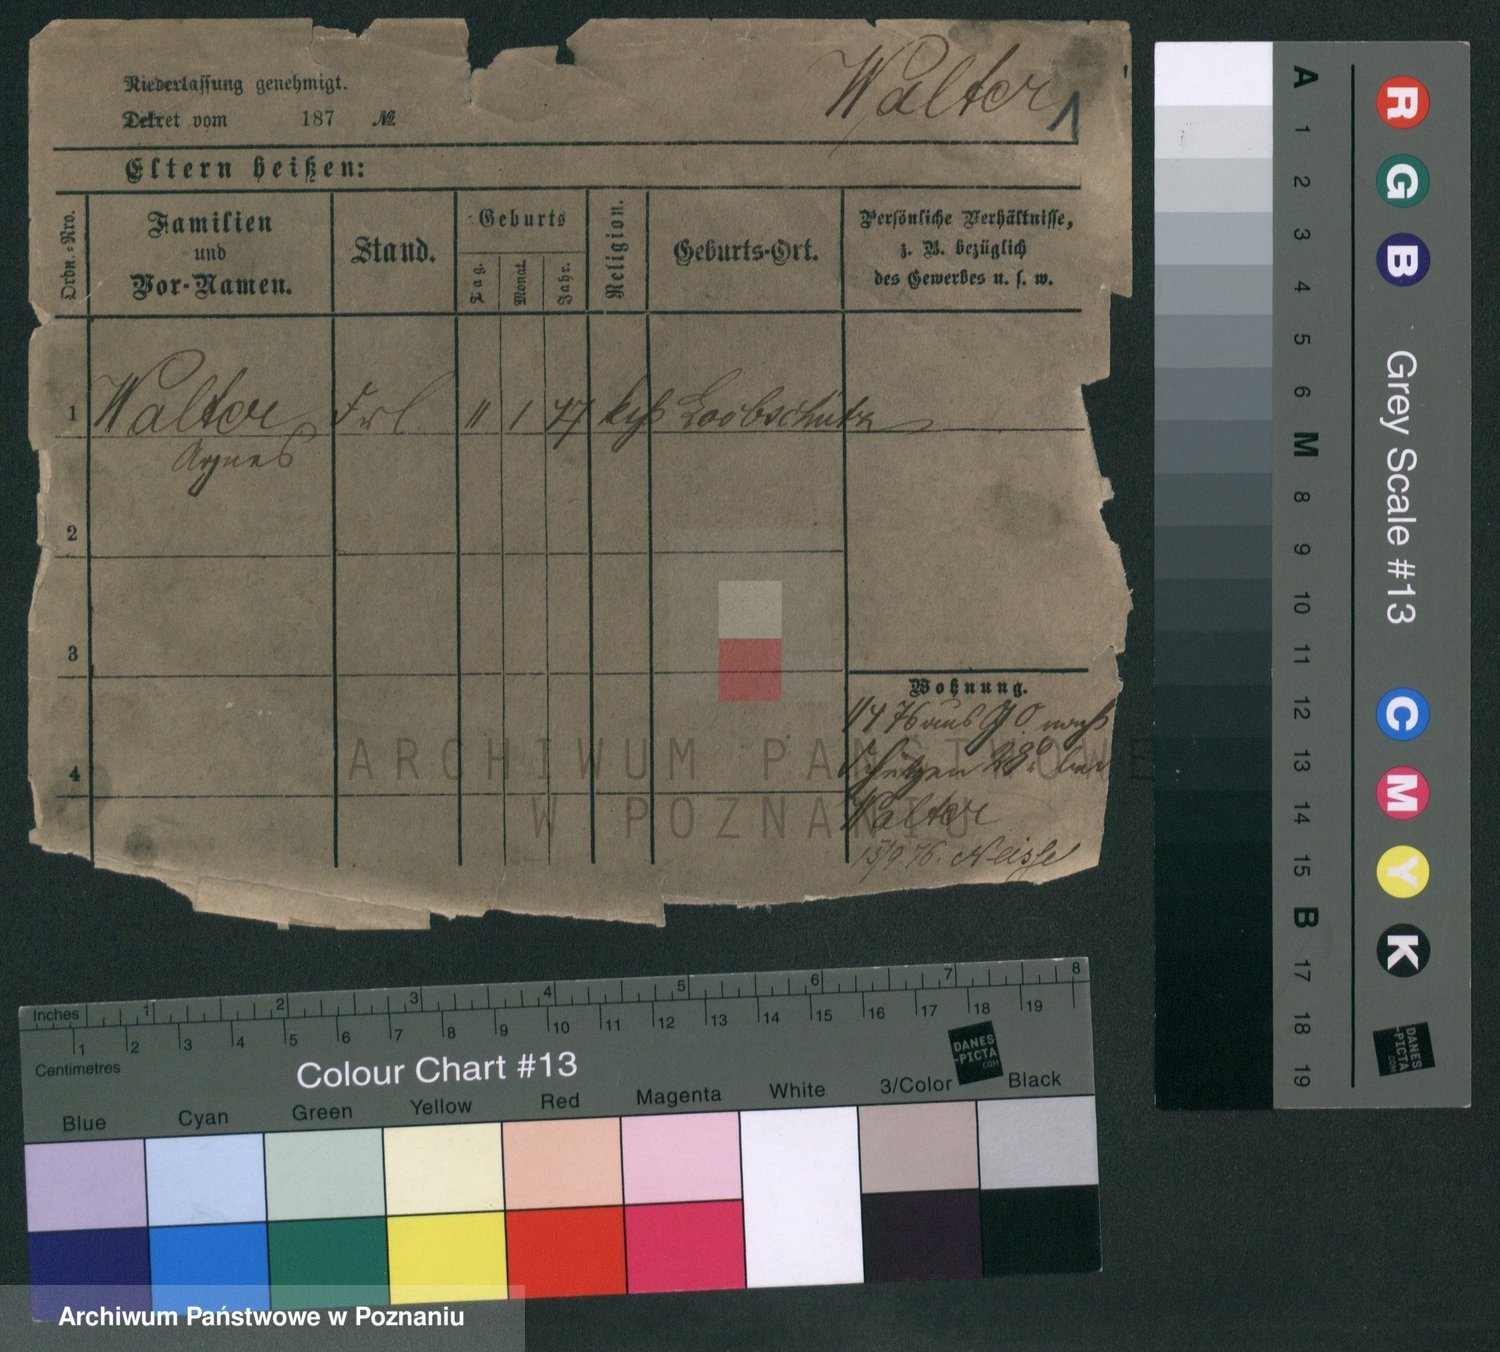 Niederlassung genehmigt.
Dekret vom 187 №
Walter
1
Eltern heißen:
Ordn.-Nro.
Familien
und
Vor-Namen.
Stand.
Geburts
Tag.
Monat.
Jahr.
Religion.
Geburts-Ort.
Persönliche Verhältnisse,
z. B. bezüglich
des Gewerbes u. s. w.
1 Walter Frl. 11 1 47 Loobschütz
Agnes
2
3
4
Wohnung.
1/4 76 aus
Schützen 28
Walter
15/9.76. Neisse
ARCHIWUM PAŃSTWOWE
W POZNANIU
A 1 2 3 4 5 6 M 8 9 10 11 12 13 14 15 B 17 18 19
R G B
Grey Scale #13
C M Y K
DANES
-PICTA
.COM
Inches 1 2 3 4 5 6 7 8
1 2 3 4 5 6 7 8 9 10 11 12 13 14 15 16 17 18 19
Centimetres
Colour Chart #13
DANES
-PICTA
.COM
Blue Cyan Green Yellow Red Magenta White 3/Color Black
Archiwum Państwowe w Poznaniu